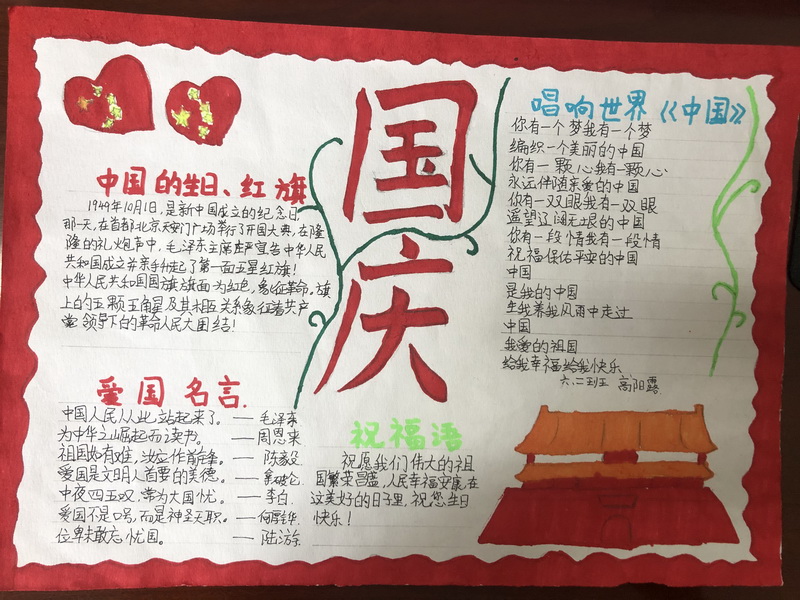 国庆
中国的生日、红旗
1949年10月1日,是新中国成立的纪念日,
那一天,在首都北京天安门广场举行了开国大典,在隆
隆的礼炮声中,毛泽东主席庄严宣告中华人民
共和国成立并亲手升起了第一面五星红旗!
中华人民共和国国旗旗面为红色,象征革命,旗
上的五颗五角星及其相互关系象征着共产
党领导下的革命人民大团结!
爱国名言
中国人民从此站起来了。——毛泽东
为中华之崛起而读书。——周恩来
祖国如有难,汝应作前锋。——陈毅
爱国是文明人首要的美德。——拿破仑
中夜四五叹,常为大国忧。——李白
爱国不是口号,而是神圣天职。——何厚铧
位卑未敢忘忧国。——陆游
祝福语
祝愿我们伟大的祖
国繁荣昌盛,人民幸福安康,在
这美好的日子里,祝您生日
快乐!
唱响世界《中国》
你有一个梦我有一个梦
编织一个美丽的中国
你有一颗心我有一颗心
永远伴随亲爱的中国
你有一双眼我有一双眼
遥望辽阔无垠的中国
你有一段情我有一段情
祝福保佑平安的中国
中国
是我的中国
生我养我风雨中走过
中国
我爱的祖国
给我幸福给我快乐
六.二班 高阳露